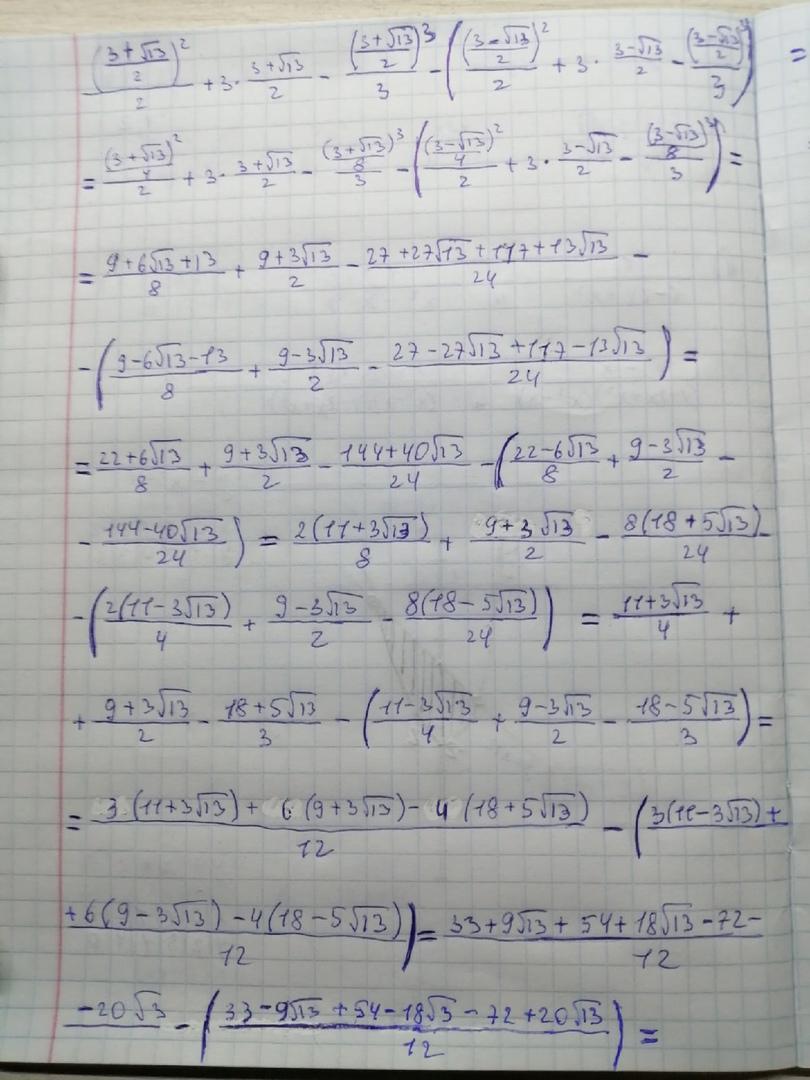 ((3+√13)/2)²/2 + 3·(3+√13)/2 − ((3+√13)/2)³/3 − (((3−√13)/2)²/2 + 3·(3−√13)/2 − ((3−√13)/2)³/3) =
= ((3+√13)²/4)/2 + 3·(3+√13)/2 − ((3+√13)³/8)/3 − (((3−√13)²/4)/2 + 3·(3−√13)/2 − ((3−√13)³/8)/3) =
= (9+6√13+13)/8 + (9+3√13)/2 − (27+27√13+117+13√13)/24 −
−((9−6√13−13)/8 + (9−3√13)/2 − (27−27√13+117−13√13)/24) =
= (22+6√13)/8 + (9+3√13)/2 − (144+40√13)/24 − ((22−6√13)/8 + (9−3√13)/2 −
− (144−40√13)/24) = 2(11+3√13)/8 + (9+3√13)/2 − 8(18+5√13)/24 −
−(2(11−3√13)/4 + (9−3√13)/2 − 8(18−5√13)/24) = (11+3√13)/4 +
+ (9+3√13)/2 − (18+5√13)/3 − ((11−3√13)/4 + (9−3√13)/2 − (18−5√13)/3) =
= (3·(11+3√13)+6(9+3√13)−4(18+5√13))/12 − (3(11−3√13)+
+6(9−3√13)−4(18−5√13))/12) = (33+9√13+54+18√13−72−)/12
−20√3 − ((33−9√13+54−18√3−72+20√13)/12) =